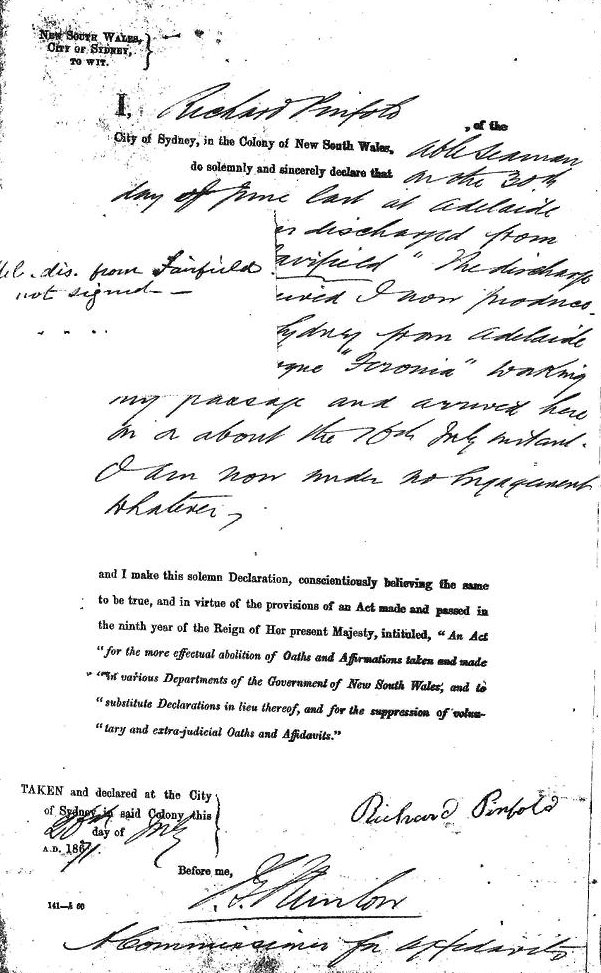 NEW SOUTH WALES,
CITY OF SYDNEY,
TO WIT.
I, Richard Pinfold
, of the
City of Sydney, in the Colony of New South Wales, able seaman
do solemnly and sincerely declare that on the 30th
day of June last at Adelaide
discharged from
airfield" The discharge
dis. from Fairfield
not signed
I now produce.
Sydney from Adelaide
que "Feronia" working
my passage and arrived here
on or about the 16th July instant.
I am now under no engagement
whatever,
and I make this solemn Declaration, conscientiously believing the same
to be true, and in virtue of the provisions of an Act made and passed in
the ninth year of the Reign of Her present Majesty, intituled, "An Act
"for the more effectual abolition of Oaths and Affirmations taken and made
"in various Departments of the Government of New South Wales, and to
"substitute Declarations in lieu thereof, and for the suppression of volun-
"tary and extra-judicial Oaths and Affidavits."
TAKEN and declared at the City
of Sydney in said Colony this
day of July
A.D. 1871
Richard Pinfold
Before me,
A Commissioner for affidavits